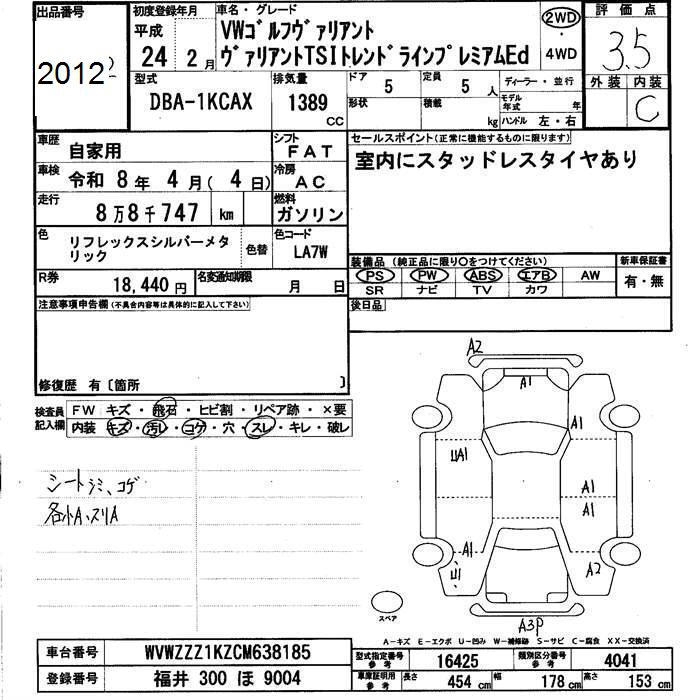 出品番号
2012
初度登録年月
平成
24 2月
車名・グレード
VWゴルフヴァリアント
ヴァリアントTSIトレンドラインプレミアムEd
2WD
・
4WD
評価点
3.5
外装 内装
C
型式
DBA-1KCAX
排気量
1389
CC
ドア
5
定員
5 人
形状
積載
kg
ディーラー・並行
モデル
年式 年
ハンドル 左・右
車歴
自家用
シフト
FAT
車検
令和 8年 4月( 4日)
冷房
AC
走行
8万8千747 km
燃料
ガソリン
色
リフレックスシルバーメタ
リック
色替
色コード
LA7W
R券
18,440円
名変通知期限
月 日
セールスポイント(正常に機能するものに限ります)
室内にスタッドレスタイヤあり
装備品 (純正品に限り○をつけてください)
PS PW ABS エアB AW
SR ナビ TV カワ
新車保証書
有・無
後日品
注意事項申告欄(不具合内容等は具体的に記入して下さい)
修復歴 有〔箇所 〕
検査員
記入欄
FW キズ・飛石・ヒビ割・リペア跡・×要
内装 キズ・汚レ・コゲ・穴・スレ・キレ・破レ
シートシミ、コゲ
各小A、スリA
A2
A1
A1
UA1
A1
A1
A1
A2
U1
A3P
スペア
A-キズ E-エクボ U-凹み W-補修跡 S-サビ C-腐食 XX-交換済
車台番号
WVWZZZ1KZCM638185
登録番号
福井 300 ほ 9004
型式指定番号
参考
16425
類別区分番号
参考
4041
車庫証明用
参考
長さ 454 cm
幅 178 cm
高さ 153 cm